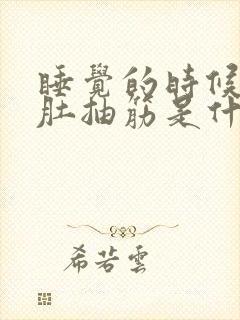 睡覺的時候
肚抽筋是什
希若雲